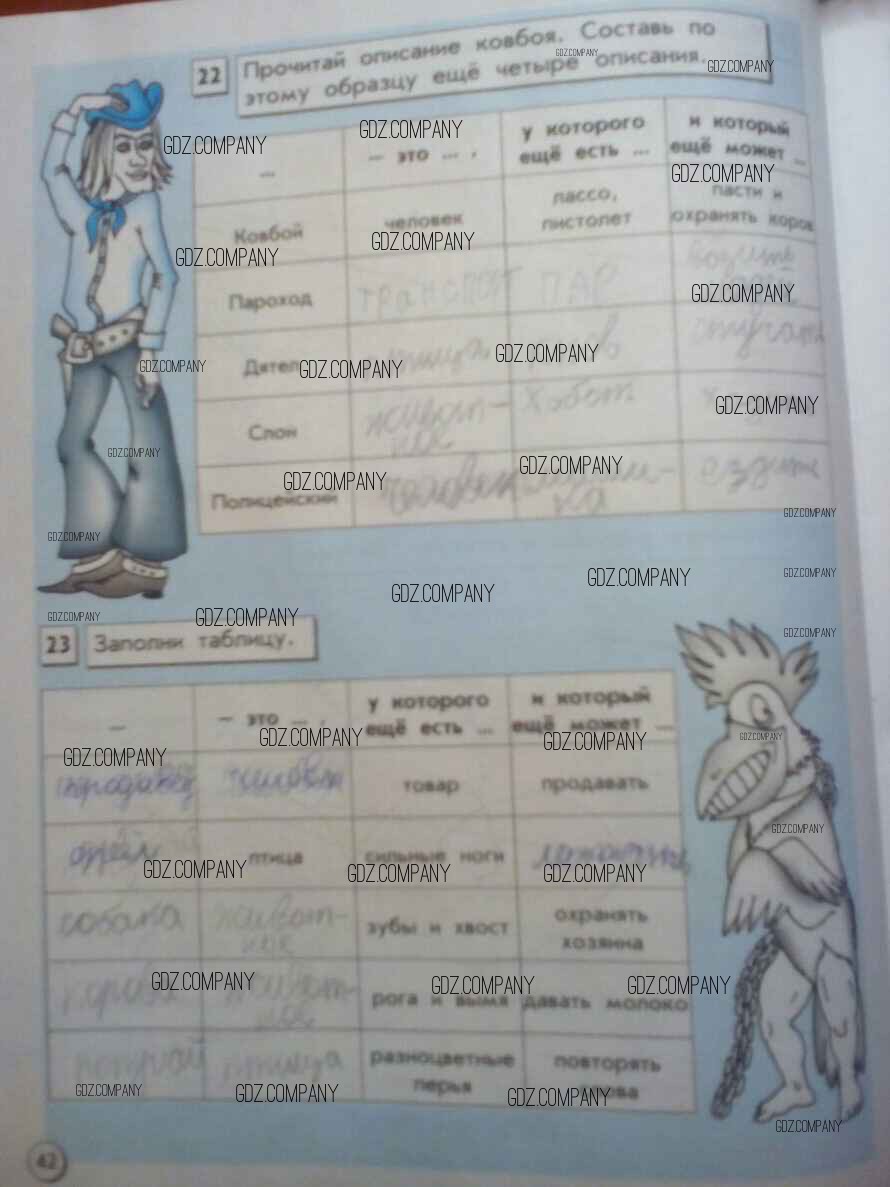 22
Прочитай описание ковбоя. Составь по
этому образцу ещё четыре описания.
— — это ... , у которого ещё есть ... и который ещё может ...
Ковбой человек лассо, пистолет пасти и охранять коров
Пароход транспорт ПАР возить
Дятел птица стучать
Слон живот-ное хобот
Полицейский человек ездить
23
Заполни таблицу.
— — это ... , у которого ещё есть ... и который ещё может ...
продавец человек товар продавать
орёл птица сильные ноги
собака живот-ное зубы и хвост охранять хозяина
корова живот-ное рога и вымя давать молоко
попугай птица разноцветные перья повторять слова
42
GDZ.COMPANY